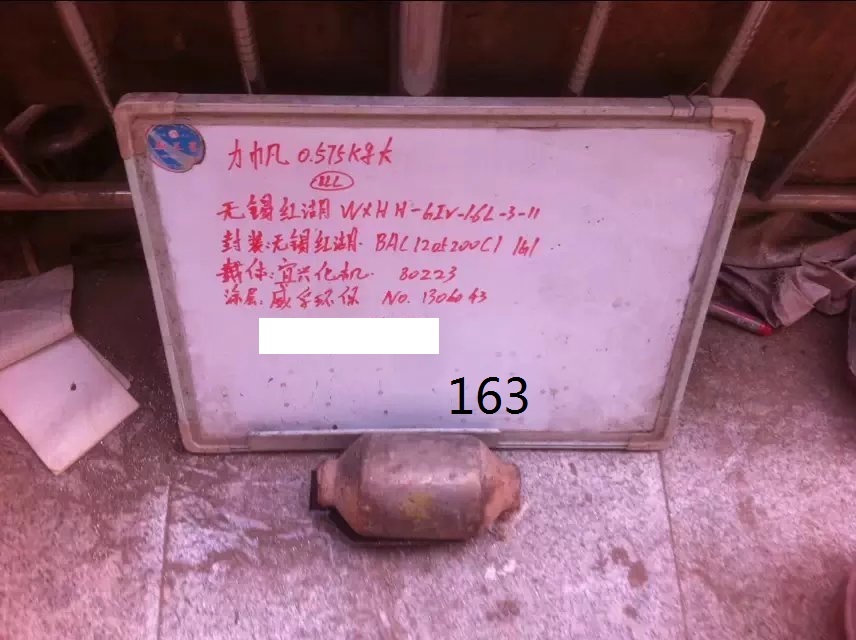 力帆 0.575K号长
222
无锡红湖 WXHH-GIV-16L-3-11
封装:无锡红湖. BAC 120t200C1
载体:宜兴化机. 80223
涂层:威孚环保 No. 1306043
163